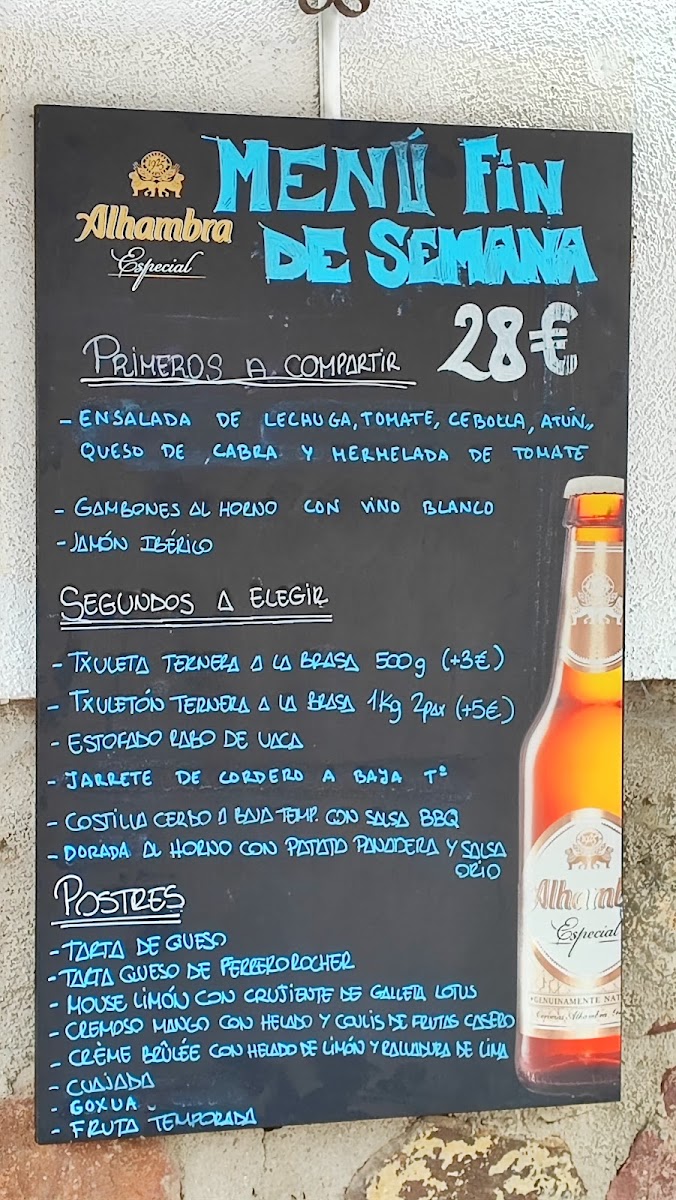 MENÚ FIN
DE SEMANA
Alhambra
Especial
28€
PRIMEROS A COMPARTIR
- ENSALADA DE LECHUGA, TOMATE, CEBOLLA, ATÚN,
QUESO DE CABRA Y MERMELADA DE TOMATE
- GAMBONES AL HORNO CON VINO BLANCO
- JAMÓN IBÉRICO
SEGUNDOS A ELEGIR
- TXULETA TERNERA A LA BRASA 500g (+3€)
- TXULETÓN TERNERA A LA BRASA 1Kg 2pax (+5€)
- ESTOFADO RABO DE VACA
- JARRETE DE CORDERO A BAJA Tª
- COSTILLA CERDO A BAJA TEMP. CON SALSA BBQ
- DORADA AL HORNO CON PATATA PANADERA Y SALSA
ORIO
POSTRES
- TARTA DE QUESO
- TARTA QUESO DE FERRERO ROCHER
- MOUSE LIMÓN CON CRUJIENTE DE GALLETA LOTUS
- CREMOSO MANGO CON HELADO Y COULIS DE FRUTAS CASERO
- CRÈME BRÛLÉE CON HELADO DE LIMÓN Y RALLADURA DE LIMA
- CUAJADA
- GOXUA
- FRUTA TEMPORADA
Alhamb
Especial
GENUINAMENTE NAT
Cervezas Alhambra